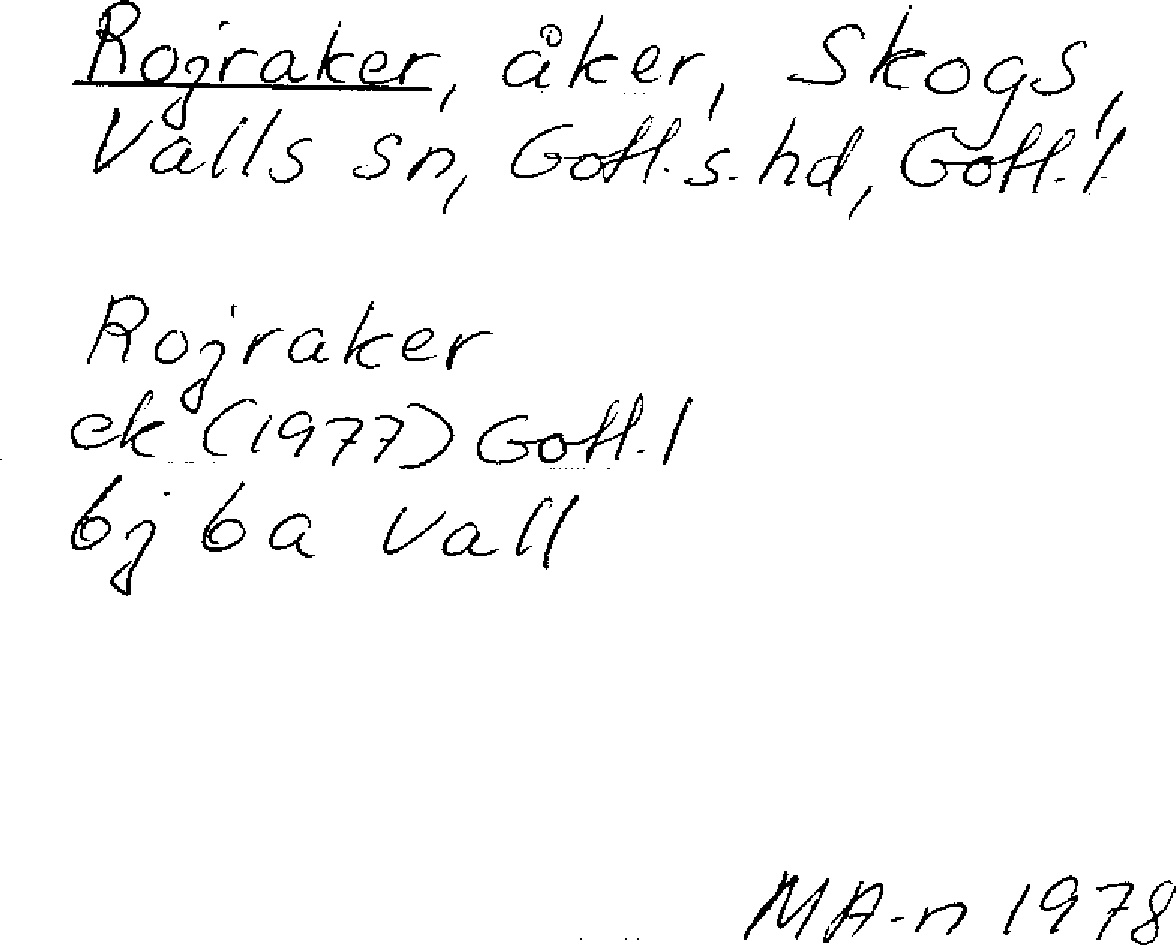 Rojraker, åker, Skogs,
Valls sn, Gotl.s.hd, Gotl.l
Rojraker
ek (1977) Gotl.l
bj ba Vall
MA-n 1978